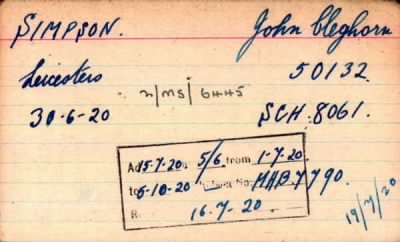 SIMPSON. John Cleghorn
Leicesters 50132.
n/MS/6445
30-6-20 SCH.8061.
Ad 15-7-20 5/6 from 1-7-20.
to 5-10-20 No. MAB.7790.
R. 16.7-20
19/7/20